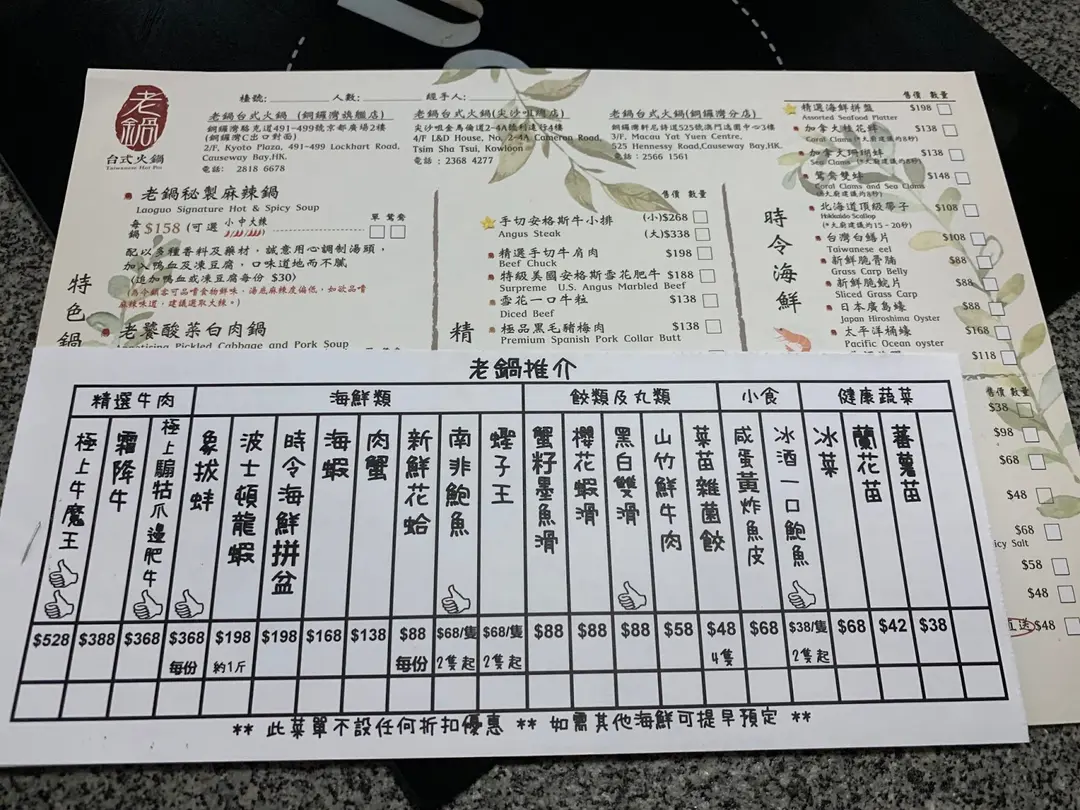 老鍋
台式火鍋
Taiwanese Hot Pot
檯號:________ 人數:________ 經手人:________
老鍋台式火鍋 (銅鑼灣旗艦店)
銅鑼灣駱克道491-499號京都廣場2樓
(銅鑼灣C出口對面)
2/F, Kyoto Plaza, 491-499 Lockhart Road,
Causeway Bay,HK.
電話: 2818 6678
老鍋台式火鍋(尖沙咀
店)
尖沙咀金馬倫道2-4A號利達行4樓
4/F I&D House, No. 2-4A Cameron Road,
Tsim Sha Tsui, Kowloon
電話:2368 4277
老鍋台式火鍋(銅鑼灣分店)
銅鑼灣軒尼詩道525號澳門逸園中心3樓
3/F, Macau Yat Yuen Centre,
525 Hennessy Road,Causeway Bay,HK.
電話:2566 1561
特色鍋
老鍋秘製麻辣鍋
Laoguo Signature Hot & Spicy Soup
單 鴛鴦
每鍋 $158 (可選 小中大辣
配以多種香料及藥材,誠意用心調制湯頭,
加入鴨血及凍豆腐,口味道地而不膩
(追加鴨血或凍豆腐每份 $30)
老饕酸菜白肉鍋
Appetising Pickled Cabbage and Pork Soup
精
售價 數量
手切安格斯牛小排 (小)$268
Angus Steak (大)$338
精選手切牛肩肉 $198
Beef Chuck
特級美國安格斯雪花肥牛 $188
Surpreme U.S. Angus Marbled Beef
雪花一口牛粒 $138
Diced Beef
極品黑毛豬梅肉 $138
Premium Spanish Pork Collar Butt
時令海鮮
售價 數量
精選海鮮拼盤 $198
Assorted Seafood Platter
加拿大桂花蚌 $138
Sea Clams (*大廚建議灼8秒)
加拿大珊瑚蚌 $138
Sea Clams (*大廚建議灼8秒)
鴛鴦雙蚌 $148
Coral Clams and Sea Clams
(*大廚建議灼8秒)
北海道頂級帶子 $108
Hokkaido Scallop
(*大廚建議灼15-20秒)
台灣白鱔片 $108
Taiwanese eel
新鮮脆魚腩 $88
Grass Carp Belly
新鮮脆鯇片 $88
Sliced Grass Carp
日本廣島蠔 $88
Japan Hiroshima Oyster
太平洋桶蠔 $168
Pacific Oyster oyster
$118
售價 數量
$38
$98
$68
$48
$68
icy Salt
$58
$48
送 $48
老鍋推介
精選牛肉 海鮮類 餃類及丸類 小食 健康蔬菜
極上牛魔王
霜降牛
極上騸牯爪邊肥牛
象拔蚌
波士頓龍蝦
時令海鮮拼盆
海蝦
肉蟹
新鮮花蛤
南非鮑魚
蟶子王
蟹籽墨魚滑
櫻花蝦滑
黑白雙滑
山竹鮮牛肉
菜苗雜菌餃
咸蛋黃炸魚皮
冰酒一口鮑魚
冰菜
蘭花苗
蕃薯苗
$528 $388 $368 $368 $198 $198 $168 $138 $88 $68/隻 $68/隻 $88 $88 $88 $58 $48 $68 $38/隻 $68 $42 $38
每份 約1斤 每份 2隻起 2隻起 4隻 2隻起
** 此菜單不設任何折扣優惠 ** 如需其他海鮮可提早預定 **